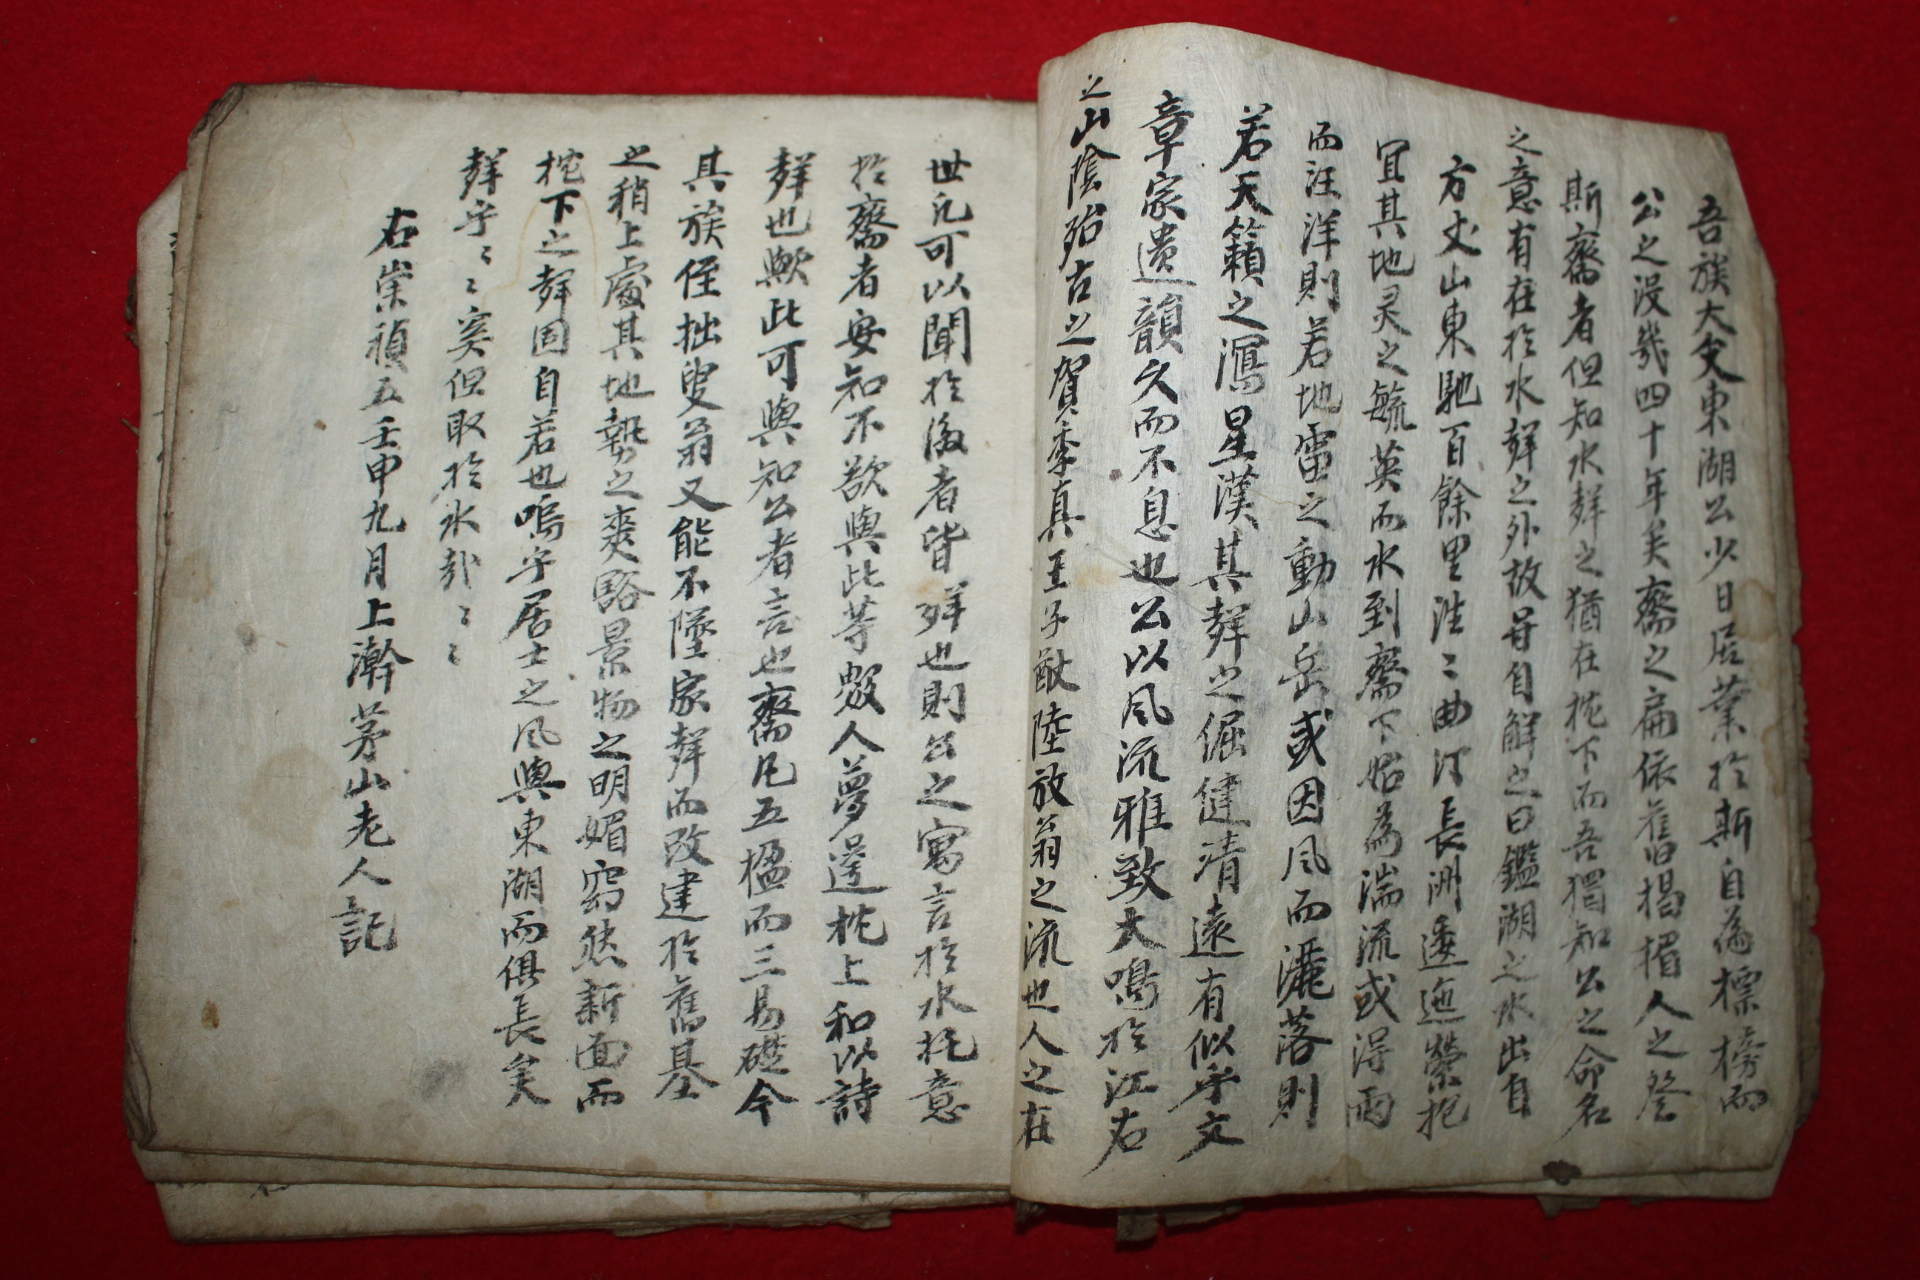 吾族大丈東湖公少日居業於斯自為標榜而
公之沒幾四十年矣齋之扁依舊揭楣人之登
斯齋者但知水聲之猶在枕下而吾獨知公之命名
之意有在於水聲之外故每自解之曰鑑湖之水出自
方丈山東馳百餘里洼〻曲汀長洲逶迤縈抱
宜其地灵之毓英而水到齋下始為湍流或得雨
而汪洋則若地雷之動山岳或因風而灑落則
若天籟之瀉星漢其聲之倔健清遠有似乎文
章家遺韻久而不息也公以風流雅致大鳴於江右
之山陰殆古之賀季真王子猷陸放翁之流也人之在
世凡可以聞於後者皆聲也則公之寓言於水托意
於齋者安知不欲與此等數人夢邊枕上和以詩
聲也歟此可與知公者言也齋凡五楹而三易礎今
其族侄拙叟翁又能不墜家聲而改建於舊基
之稍上處其地勢之爽豁景物之明媚窈然新面而
枕下之聲固自若也嗚乎居士之風與東湖而俱長矣
聲乎〻〻奚但取於水哉〻〻
右崇禎五壬申九月上澣茅山老人記